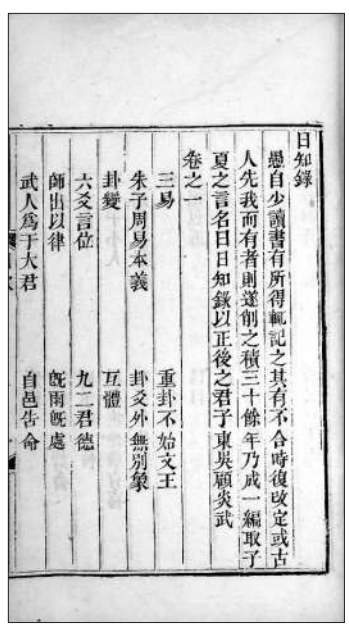 日知錄
愚自少讀書有所得輒記之其有不合時復改定或古
人先我而有者則遂削之積三十餘年乃成一編取子
夏之言名曰日知錄以正後之君子東吳顧炎武
卷之一
三易 重卦不始文王
朱子周易本義 卦爻外無別象
卦變 互體
六爻言位 九二君德
師出以律 旣雨旣處
武人爲于大君 自邑告命